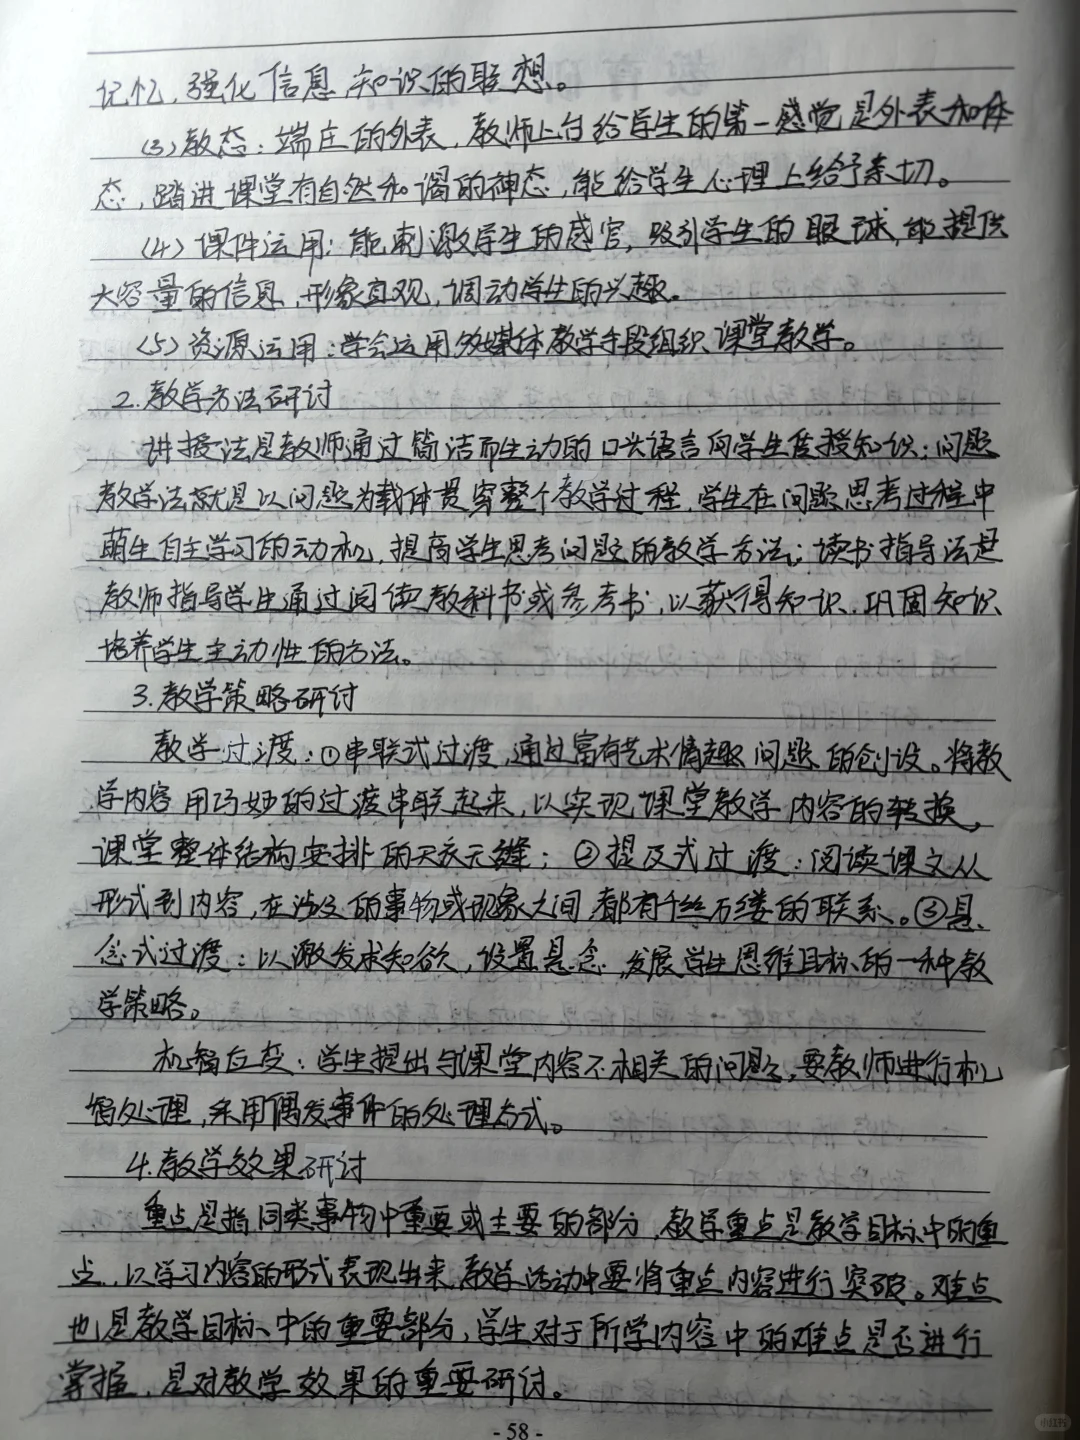 记忆，强化信息、知识的联想。
(3)教态：端庄的外表，教师上台给学生的第一感觉是外表和体
态，踏进课堂有自然和谐的神态，能给学生心理上给予亲切。
(4)课件运用：能刺激学生的感官，吸引学生的眼球，能提供
大容量的信息，形象直观，调动学生的兴趣。
(5)资源运用：学会运用多媒体教学手段组织课堂教学。
2.教学方法研讨
讲授法是教师通过简洁而生动的口头语言向学生传授知识；问题
教学法就是以问题为载体贯穿整个教学过程，学生在问题思考过程中
萌生自主学习的动机，提高学生思考问题的教学方法；读书指导法是
教师指导学生通过阅读教科书或参考书，以获得知识、巩固知识
培养学生主动性的方法。
3.教学策略研讨
教学过渡：①串联式过渡，通过富有艺术情趣问题的创设。将教
学内容用巧妙的过渡串联起来，以实现课堂教学内容的转换，
课堂整体结构安排的天衣无缝；②提及式过渡：阅读课文从
形式到内容，在涉及的事物或现象之间，都有千丝万缕的联系。③悬
念式过渡：以激发求知欲，设置悬念，发展学生思维目标的一种教
学策略。
机智应变：学生提出与课堂内容不相关的问题，要教师进行机
智处理，采用偶发事件的处理方式。
4.教学效果研讨
重点是指同类事物中重要或主要的部分，教学重点是教学目标中的重
点，以学习内容的形式表现出来，教学活动中要将重点内容进行突破。难点
也是教学目标中的重要部分，学生对于所学内容中的难点是否进行
掌握，是对教学效果的重要研讨。
- 58 -
小红书